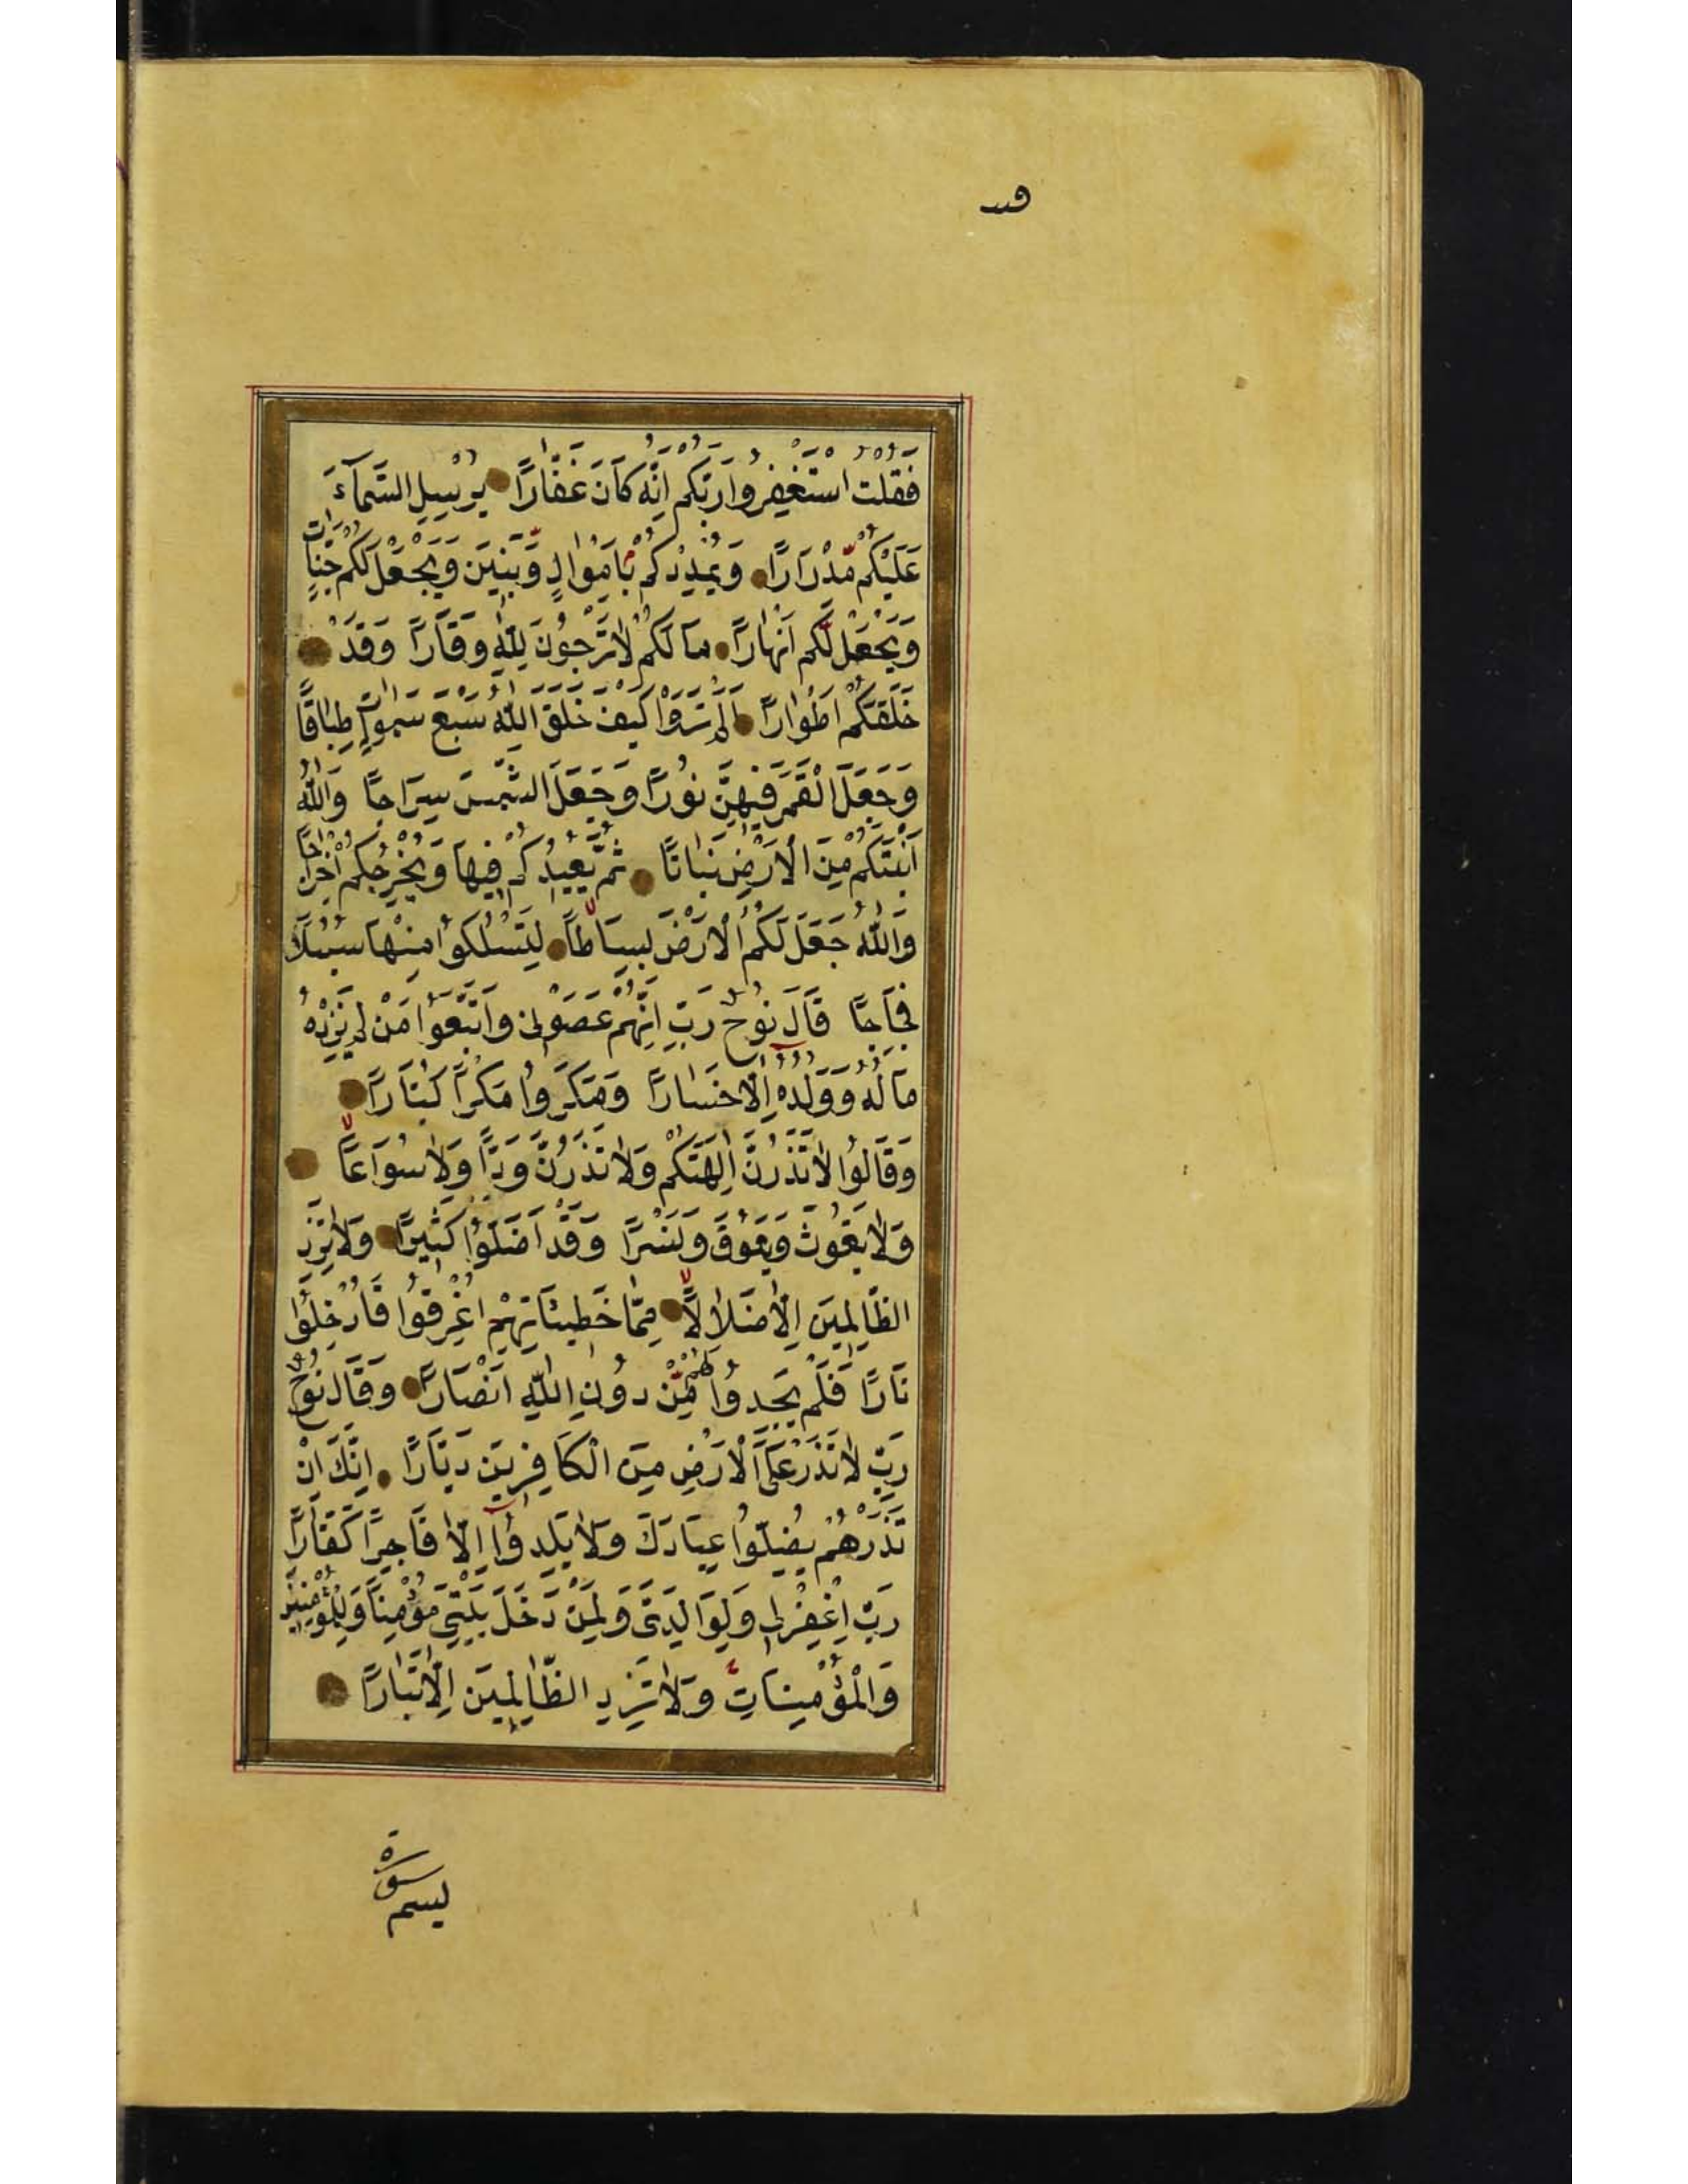 وقف
فَقُلْتُ اسْتَغْفِرُوا رَبَّكُمْ اِنَّهُ كَانَ غَفَّارًا يُرْسِلِ السَّمَآءَ
عَلَيْكُمْ مِّدْرَارًا وَيُمْدِدْكُمْ بِاَمْوَالٍ وَّبَنِينَ وَيَجْعَلْ لَكُمْ جَنَّاتٍ
وَيَجْعَلْ لَّكُمْ اَنْهَارًا مَا لَكُمْ لَا تَرْجُونَ لِلّٰهِ وَقَارًا وَقَدْ
خَلَقَكُمْ اَطْوَارًا اَلَمْ تَرَوْا كَيْفَ خَلَقَ اللّٰهُ سَبْعَ سَمٰوَاتٍ طِبَاقًا
وَجَعَلَ الْقَمَرَ فِيهِنَّ نُورًا وَجَعَلَ الشَّمْسَ سِرَاجًا وَاللّٰهُ
اَنْبَتَكُمْ مِنَ الْاَرْضِ نَبَاتًا ثُمَّ يُعِيدُكُمْ فِيهَا وَيُخْرِجُكُمْ اِخْرَاجًا
وَاللّٰهُ جَعَلَ لَكُمُ الْاَرْضَ بِسَاطًا لِتَسْلُكُوا مِنْهَا سُبُلًا
فِجَاجًا قَالَ نُوحٌ رَبِّ اِنَّهُمْ عَصَوْنِى وَاتَّبَعُوا مَنْ لَمْ يَزِدْهُ
مَالُهُ وَوَلَدُهُ اِلَّا خَسَارًا وَمَكَرُوا مَكْرًا كُبَّارًا
وَقَالُوا لَا تَذَرُنَّ اٰلِهَتَكُمْ وَلَا تَذَرُنَّ وَدًّا وَلَا سُوَاعًا
وَلَا يَغُوثَ وَيَعُوقَ وَنَسْرًا وَقَدْ اَضَلُّوا كَثِيرًا وَلَا تَزِدِ
الظَّالِمِينَ اِلَّا ضَلَالًا مِمَّا خَطِيئَاتِهِمْ اُغْرِقُوا فَاُدْخِلُوا
نَارًا فَلَمْ يَجِدُوا لَهُمْ مِّنْ دُونِ اللّٰهِ اَنْصَارًا وَقَالَ نُوحٌ
رَبِّ لَا تَذَرْ عَلَى الْاَرْضِ مِنَ الْكَافِرِينَ دَيَّارًا اِنَّكَ اِنْ
تَذَرْهُمْ يُضِلُّوا عِبَادَكَ وَلَا يَلِدُوآ اِلَّا فَاجِرًا كَفَّارًا
رَبِّ اغْفِرْلِى وَلِوَالِدَىَّ وَلِمَنْ دَخَلَ بَيْتِىَ مُؤْمِنًا وَلِلْمُؤْمِنِينَ
وَالْمُؤْمِنَاتِ وَلَا تَزِدِ الظَّالِمِينَ اِلَّا تَبَارًا
سورة
بسم